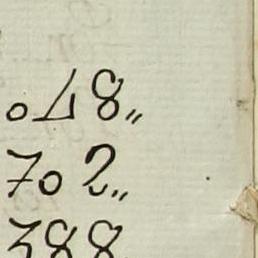 048〃
702〃
388